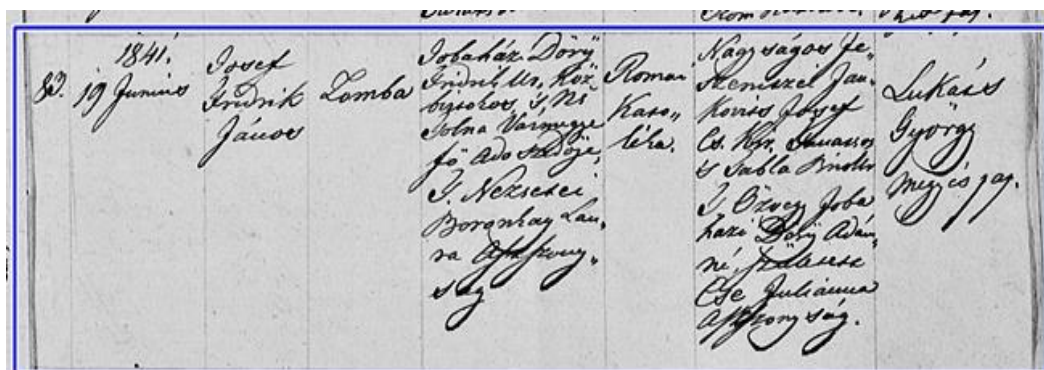 1841.
83.
19 Junius
Josef
Fridrik
János
Zomba
Jobaházi Döry
Fridrik Ur, Köz
birtokos, 's Ns
Tolna Vármegye
fő Adószedője,
T. Nezsetei
Boronkay Lau„
ra Aszszony„
ság
Roman
Kato„
lika.
Nagyságos Je„
szeniszei Jan„
kovics Josef
Cs. Kir. Tanácsos
's Tabla
T. Özvegy Joba
házi Döry Adám„
né, szül.
Cse Juliánna
Aszszonyság.
Lukáts
György
megyés pap.